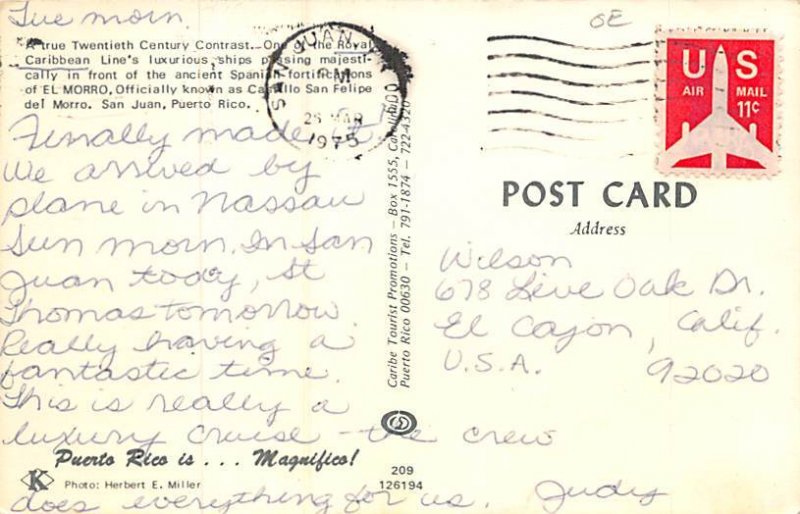 Tue morn.
A true Twentieth Century Contrast. One of the Royal
Caribbean Line's luxurious ships passing majesti-
cally in front of the ancient Spanish fortifications
of EL MORRO, Officially known as Castillo San Felipe
del Morro. San Juan, Puerto Rico.
Finally made it!
We arrived by
plane in Nassau
Sun morn. In San
Juan today, St
Thomas tomorrow.
Really having a
fantastic time.
This is really a
luxury cruise - the crew
does everything for us. Judy
Puerto Rico is . . . Magnifico!
K
Photo: Herbert E. Miller
209
126194
Caribe Tourist Promotions – Box 1555, Carolina
Puerto Rico 00630 – Tel. 791-1874 – 722-4320
SAN JUAN, P.R.
PM
25 MAR
1975
009
OE
US
AIR MAIL
11¢
POST CARD
Address
Wilson
678 Live Oak Dr.
El Cajon, Calif.
U.S.A. 92020